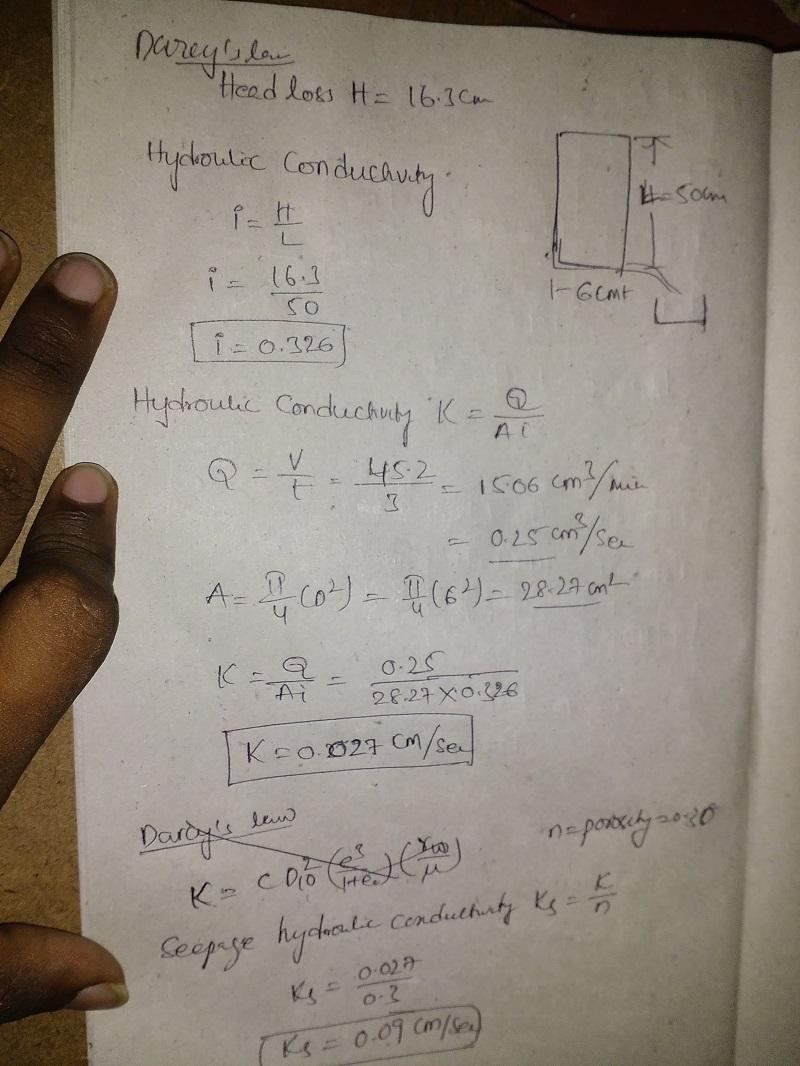 Darcy's law
Head loss H = 16.3cm
Hydroulic Conductivity.
i = H/L
H=50cm
i = 16.3/50
|-6cm+
i = 0.326
Hydroulic Conductivity K = Q/Ai
Q = V/t = 45.2/3 = 15.06 cm³/min
= 0.25 cm³/sec
A = π/4 (D²) = π/4 (6²) = 28.27 cm²
K = Q/Ai = 0.25/28.27×0.326
K = 0.027 cm/sec
Darcy's law
n = porosity = 0.30
K = C D₁₀² (e³/1+e) (γω/μ)
Seepage hydroulic conductivity Ks = K/n
Ks = 0.027/0.3
Ks = 0.09 cm/sec